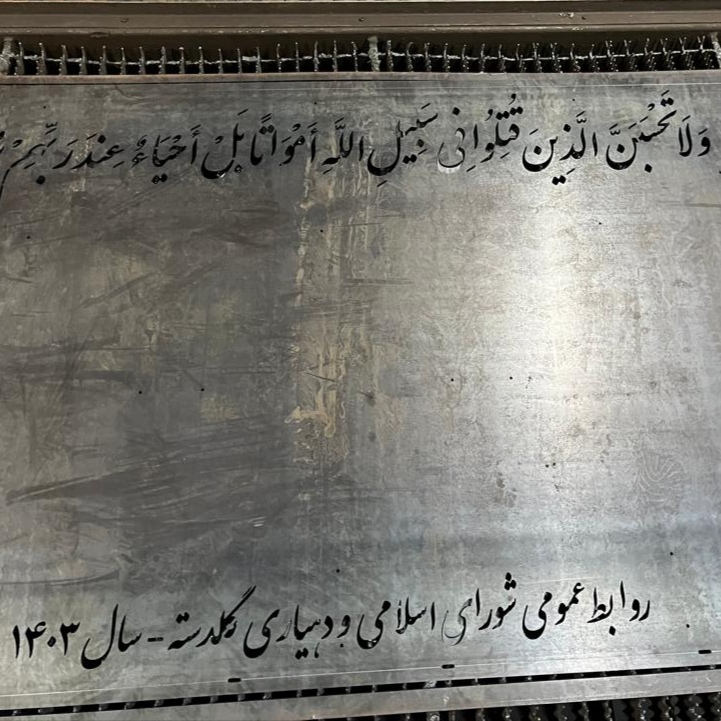 وَلَا تَحْسَبَنَّ الَّذِينَ قُتِلُوا فِی سَبِیلِ اللَّهِ أَمْوَاتًا بَلْ أَحْیَاءٌ عِندَ رَبِّهِمْ
روابط عمومی شورای اسلامی و دهیاری گلدسته - سال ۱۴۰۳